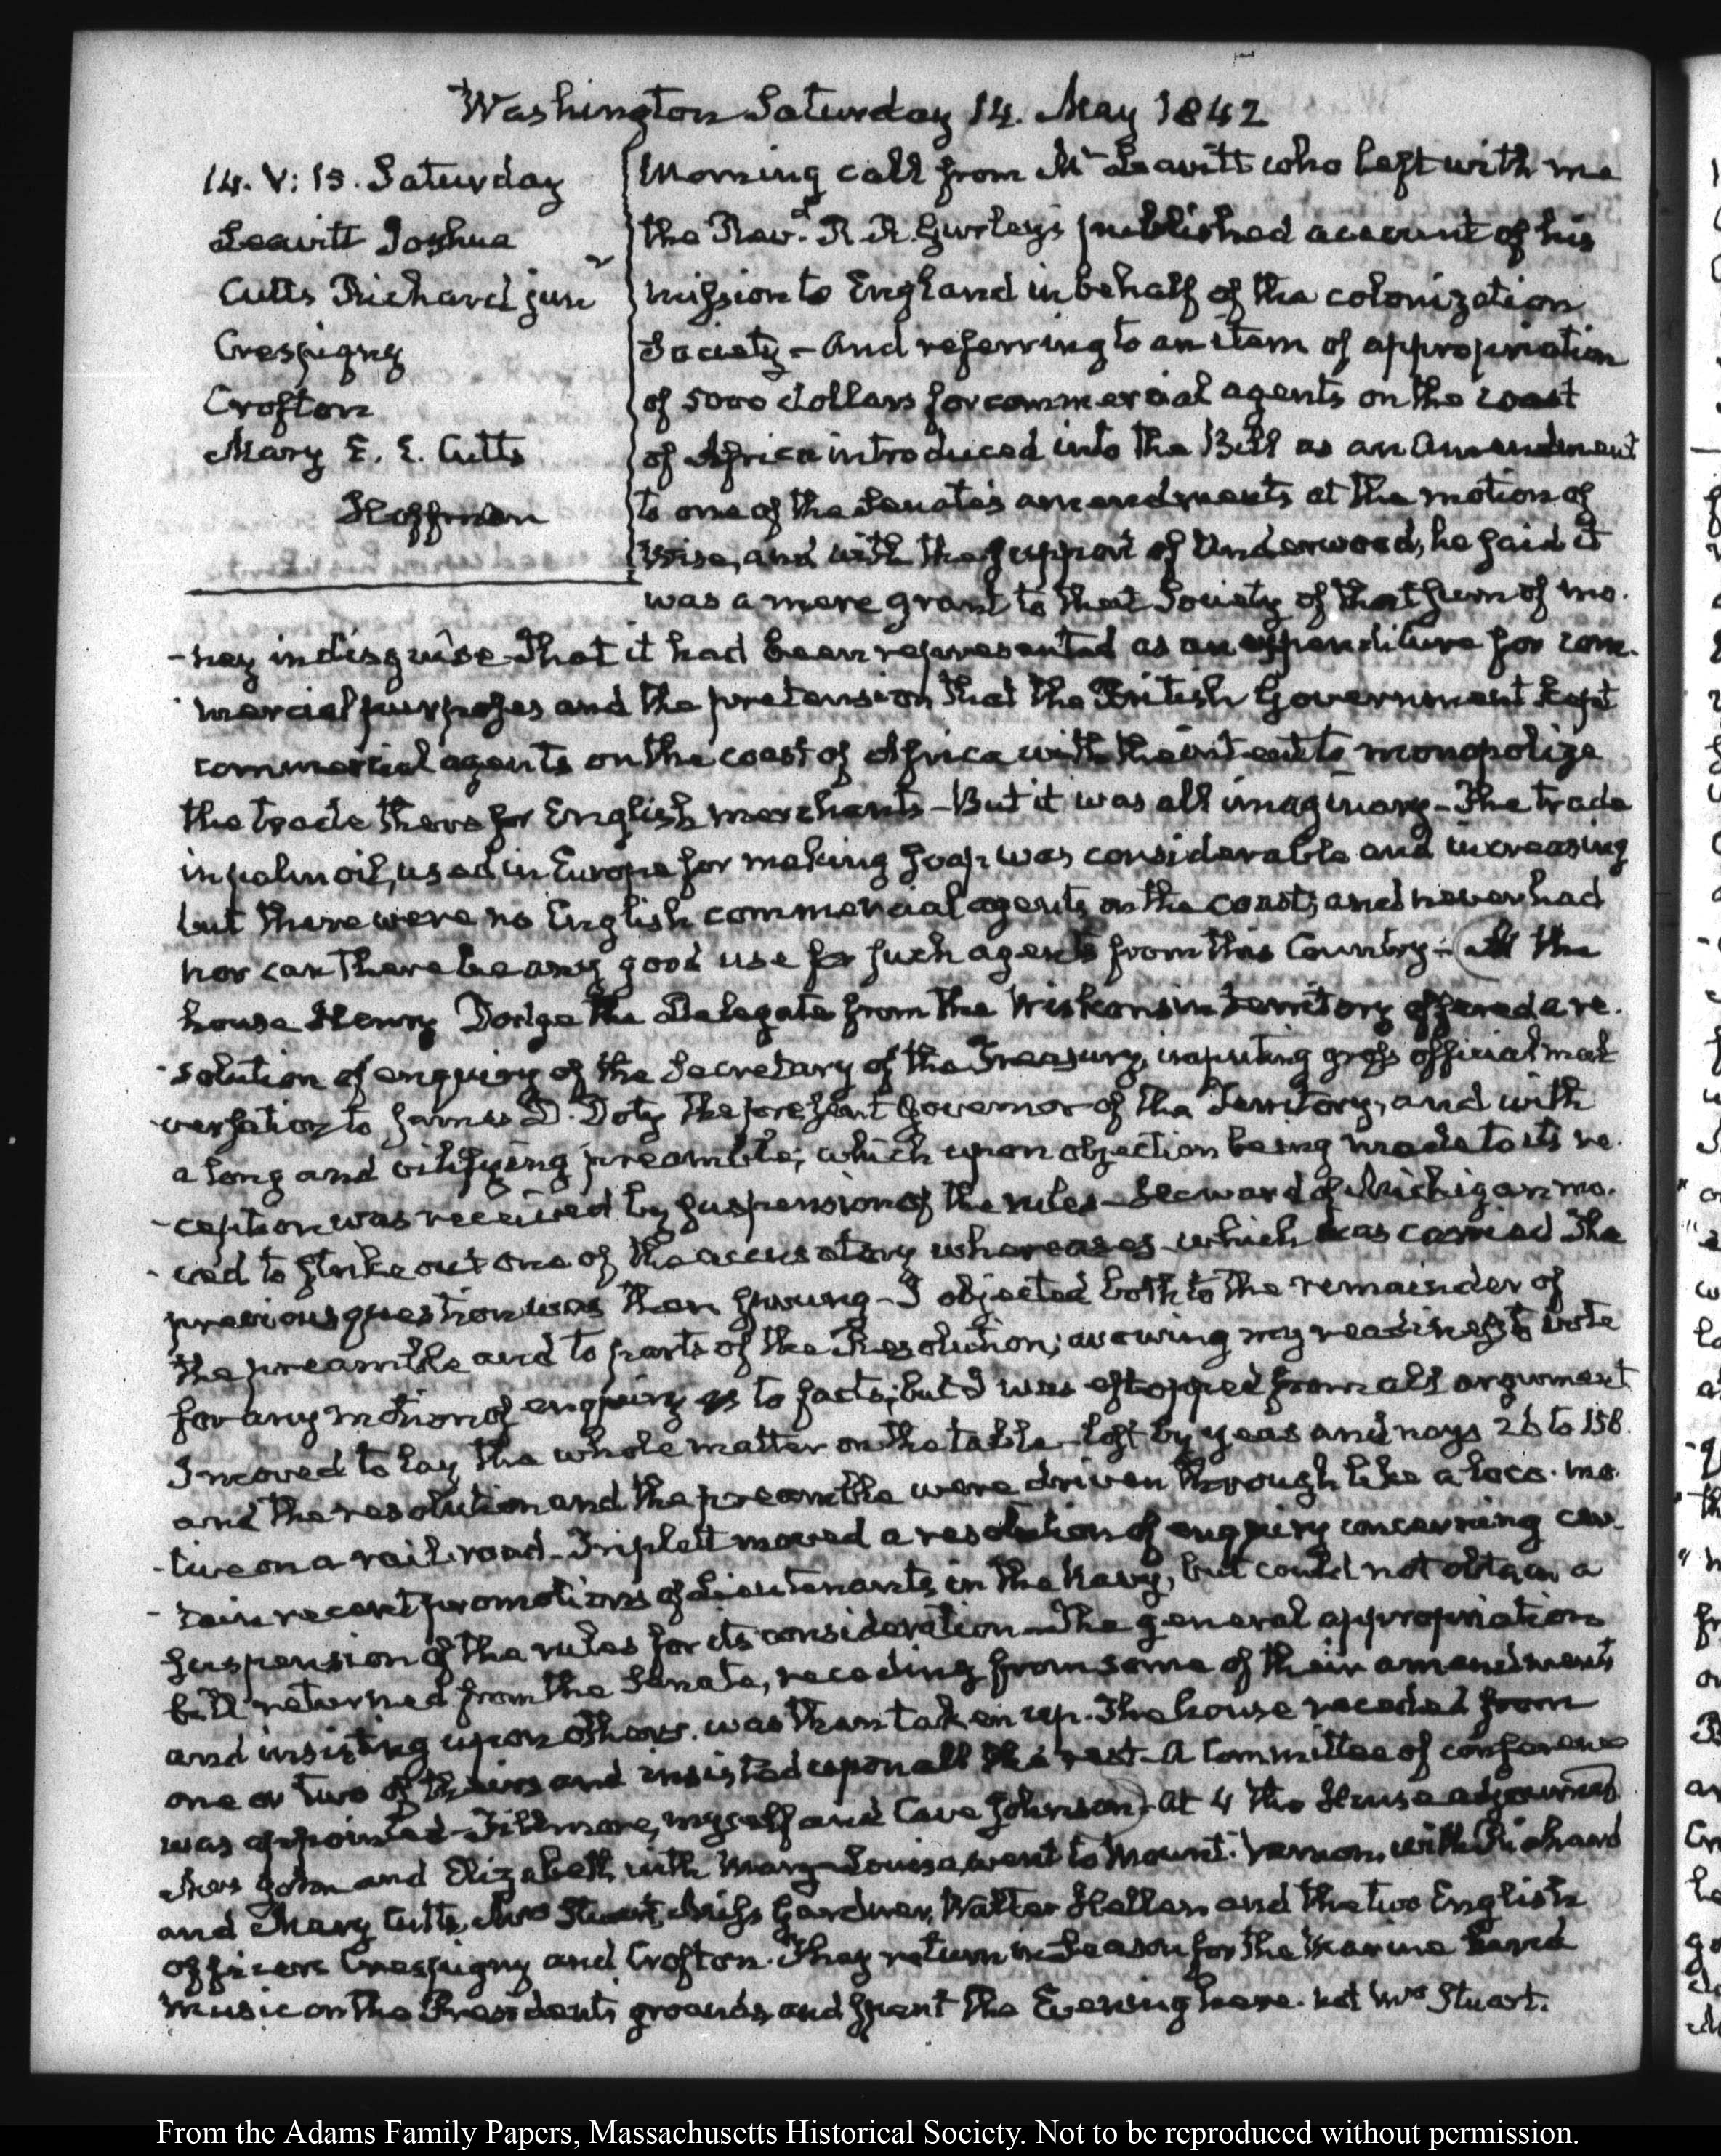 Washington Saturday 14. May 1842
14. V: 15. Saturday
Leavitt Joshua
Cutts Richard junr
Crespigny
Crofton
Mary E. E. Cutts
Hoffman
Morning call from Mr Leavitt who left with me
the Revd. R. R. Gurley's published account of his
mission to England in behalf of the colonization
Society - And referring to an item of appropriation
of 5000 dollars for commercial agents on the coast
of Africa introduced into the Bill as an Amendment
to one of the Senate's amendments at the motion of
Wise, and with the support of Underwood, he said it
was a mere grant to that Society of that sum of mo-
-ney in disguise - That it had been represented as an expenditure for com-
-mercial purposes and the pretension that the British Government kept
commercial agents on the coast of Africa with the intent to monopolize
the trade there for English merchants - But it was all imaginary - The trade
in palm oil, used in Europe for making soap was considerable and increasing
but there were no English commercial agents on the coast, and never had
nor can there be any good use for such agents from this Country - At the
house Henry Dodge the Delegate from the Wiskonsin Territory offered a re-
-solution of enquiry of the Secretary of the Treasury, imputing gross official mal
-versation to James D. Doty the present Governor of the Territory, and with
a long and vilifying preamble; which upon objection being made to its re-
-ception was received by suspension of the rules - Seward of Michigan mo-
-ved to strike out one of the accusatory whereases - which was carried The
previous question was then sprung - I objected both to the remainder of
the preamble and to parts of the Resolution; avowing my readiness to vote
for any motion of enquiry as to facts; but I was estopped from all argument
I moved to lay the whole matter on the table - lost by yeas and nays 26 to 158.
and the resolution and the preamble were driven through like a loco-mo-
-tive on a rail-road - Triplett moved a resolution of enquiry concerning cer-
-tain recent promotions of Lieutenants in the Navy, but could not obtain a
suspension of the rules for its consideration - The general appropriation
bill returned from the Senate, receding from some of their amendments
and insisting upon others. was then taken up. The house receded from
one or two of theirs and insisted upon all the rest - A Committee of conference
was appointed - Fillmore, myself and Cave Johnson - At 4 the House adjourned
Mrs John and Elizabeth with Mary-Louisa, went to Mount-Vernon, with Richard
and Mary Cutts, Mrs Stuart, Miss Gardner, Walter Hellen and the two English
officers Crespigny and Crofton. They return in season for the Marine band
music on the President's grounds, and spent the Evening here. not Mrs Stuart.
From the Adams Family Papers, Massachusetts Historical Society. Not to be reproduced without permission.